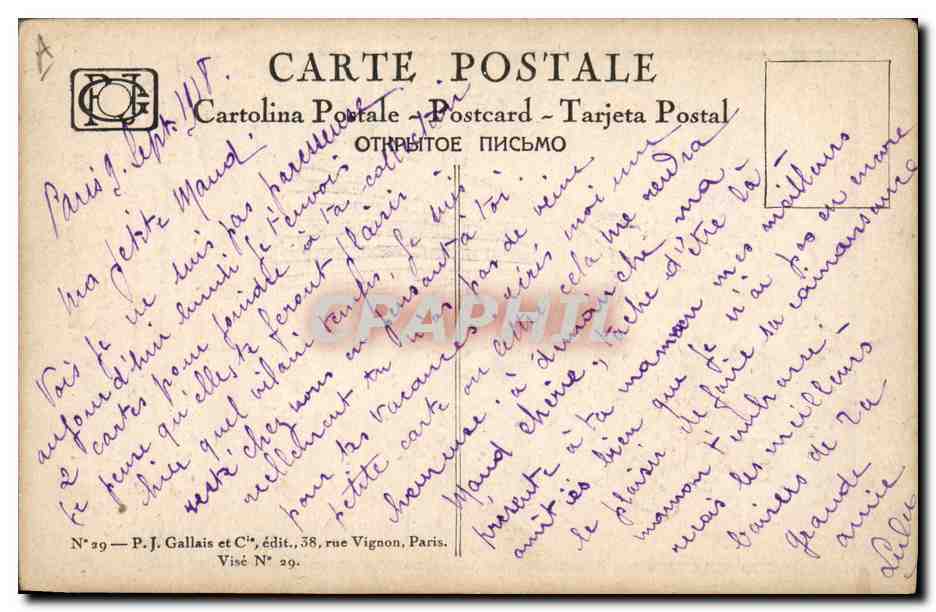 A
PJG
CARTE POSTALE
Cartolina Postale - Postcard - Tarjeta Postal
ОТКРЫТОЕ ПИСЬМО
Paris 2 Sept. 1918.
Ma petite Maud
Vois je ne suis pas paresseuse
aujourd'hui lundi je t'envois
2 cartes pour joindre à ta collection
je pense qu'elles te feront plaisir
hier quel vilain temps, je suis
resté chez nous en pensant à toi.
réellement tu n'as pas de veine
pour tes vacances
petite carte ou écris moi une
heureuse, à dimanche ma
Maud chérie, tâche d'être là
présente à ta maman mes meilleurs
amitiés bien que je n'ai pas encore
le plaisir de faire sa connaissance
maman t'embrasse -
reçois les meilleurs
baisers de ta
grande
amie
Lulu
CPAPHIL
Nº 29 — P. J. Gallais et Cie, édit., 38, rue Vignon, Paris.
Visé Nº 29.